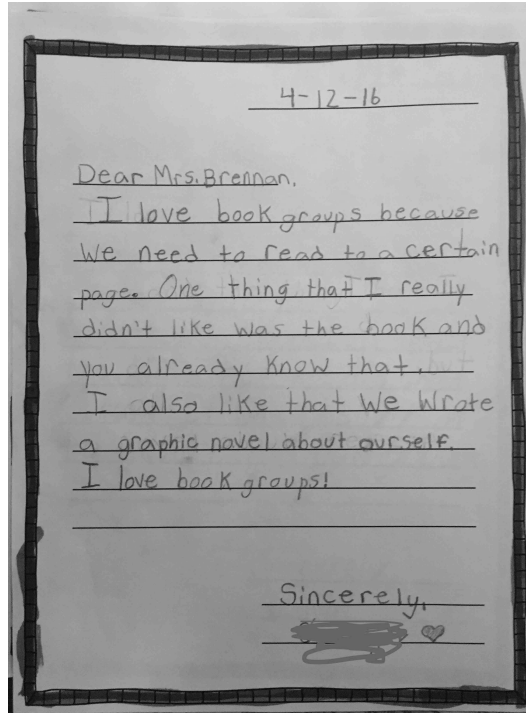 4-12-16
Dear Mrs. Brennan,
I love book groups because
we need to read to a certain
page. One thing that I really
didn't like was the book and
you already know that.
I also like that we wrote
a graphic novel about ourself.
I love book groups!
Sincerely,